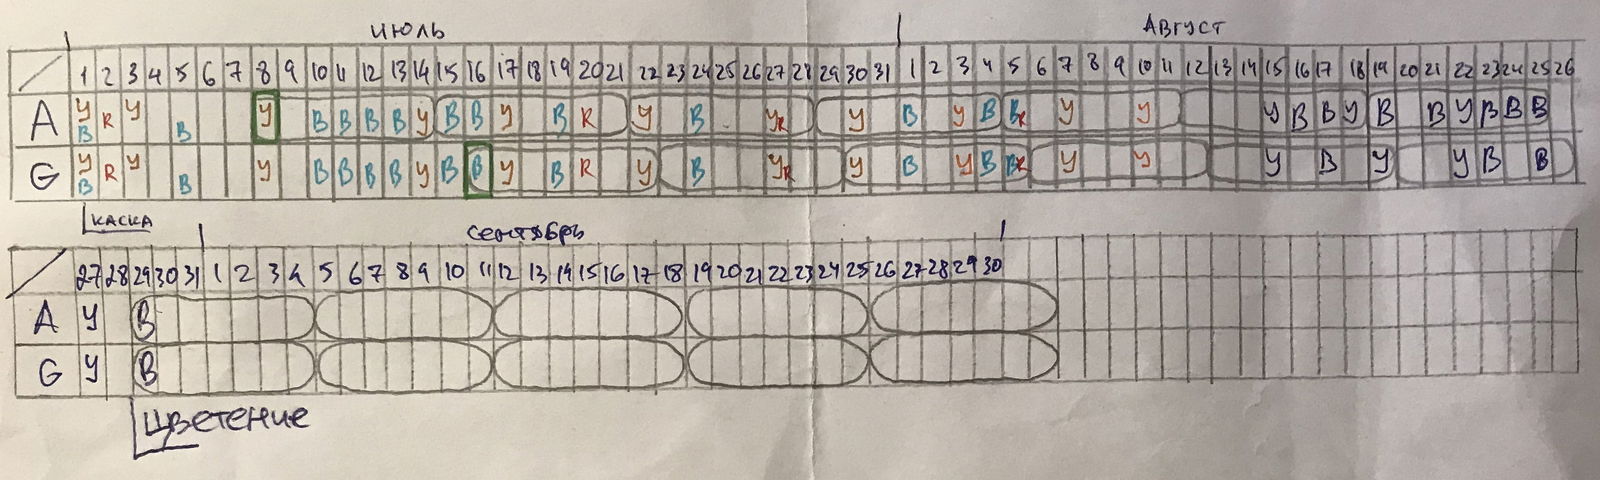 июль Август
1 2 3 4 5 6 7 8 9 10 11 12 13 14 15 16 17 18 19 20 21 22 23 24 25 26 27 28 29 30 31 1 2 3 4 5 6 7 8 9 10 11 12 13 14 15 16 17 18 19 20 21 22 23 24 25 26
A У B R У B У B B B B У B B У B R У B У R У B У B B R У У У B B У B B У B B B
G У B R У B У B B B B У B B У B R У B У R У B У B B R У У У B У У B B
каска
сентябрь
27 28 29 30 31 1 2 3 4 5 6 7 8 9 10 11 12 13 14 15 16 17 18 19 20 21 22 23 24 25 26 27 28 29 30
A У B
G У B
Цветение